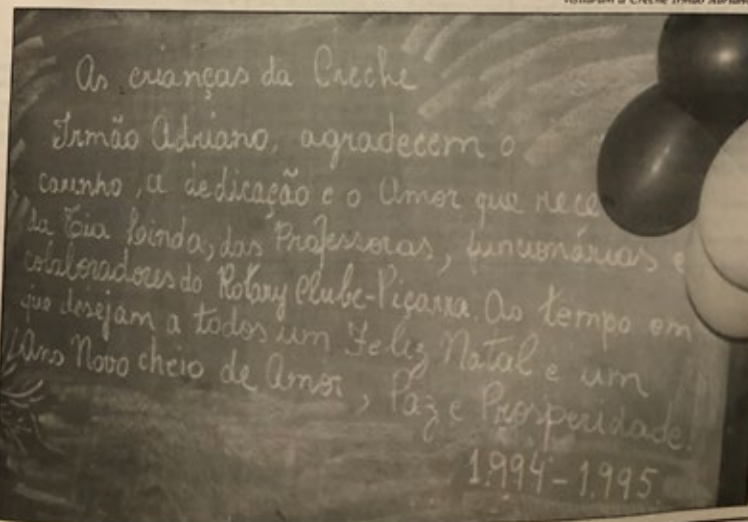 visitaram a Creche Irmão Adriano
As crianças da Creche
Irmão Adriano, agradecem o
carinho, a dedicação e o Amor que rece
da Tia Linda, das Professoras, funcionárias e
colaboradores do Rotary Clube-Piçarra. Ao tempo em
que desejam a todos um Feliz Natal e um
Ano Novo cheio de Amor, Paz e Prosperidade!
1.994-1.995